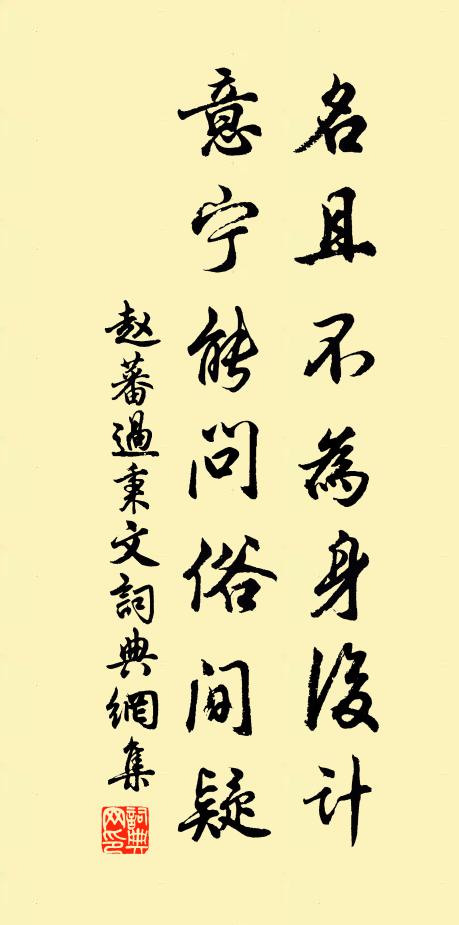 名且不為身後计
意宁能问俗间疑
赵蕃過秉文詞典網集
詞典网印